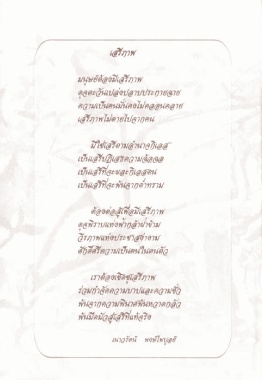 เสรีภาพ
มนุษย์ต้องมีเสรีภาพ
ดุจตะวันเปล่งปลาบประกายฉาย
ความเป็นคนมั่นคงไม่คลอนคลาย
เสรีภาพไม่ตายไปจากคน
มิใช่เสรีตามอำนาจกิเลส
เป็นเสรีปฏิเสธความฉ้อฉล
เป็นเสรีที่จะละกิเลสตน
เป็นเสรีที่จะพ้นจากต่ำทราม
ต้องต่อสู้เพื่อมีเสรีภาพ
ดุจพิราบแห่งฟ้ากล้าฝ่าข้าม
วีรภาพแห่งประชาสง่างาม
ศักดิ์ศรีความเป็นคนในตนตัว
เราต้องเชิดชูเสรีภาพ
ร่วมกำจัดความบาปและความชั่ว
พ้นจากความพินาศพ้นหวาดกลัว
พ้นมืดมัวสู่เสรีที่แท้จริง
เนาวรัตน์ พงษ์ไพบูลย์